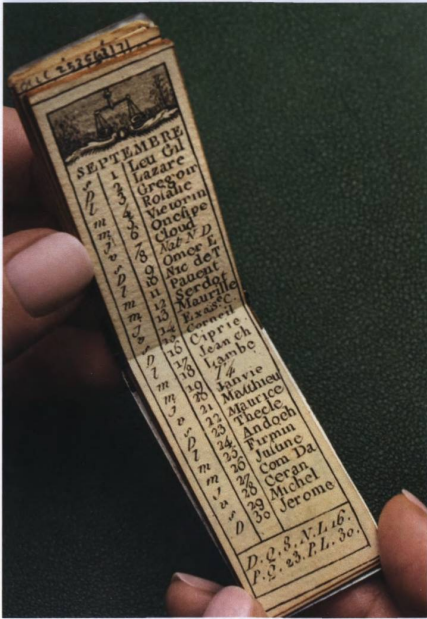 SEPTEMBRE
s 1 Leu Gil
D 2 Lazare
l 3 Gregoir
m 4
m 5 Victorin
j 6
v 7 Cloud
s 8 Nat N D
D 9 Omer E
l 10 Nic deT
m 11
m 12 Serdot
j 13 Maurille
v 14 Exas c
s 15 Corneil
D 16 Ciprie
l 17 Jean ch
m 18 Lambe
m 19
j 20 Janvie
v 21 Matthieu
s 22 Maurice
D 23 Thecle
l 24 Andoch
m 25 Firmin
m 26
j 27 Com Da
v 28 Ceran
s 29 Michel
D 30 Jerome
D.Q.8.N.L.16.
P.Q.23.P.L.30.